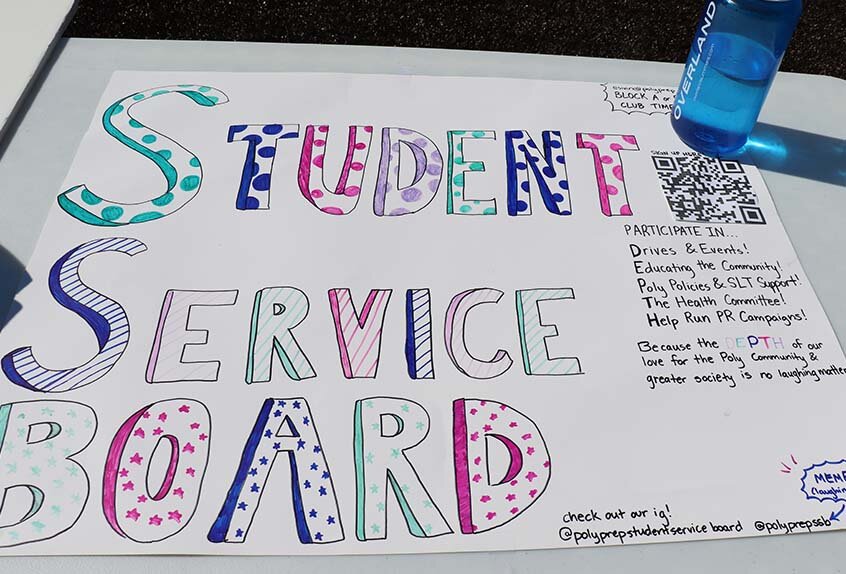 STUDENT
SERVICE
BOARD
BLOCK A or
CLUB TIME
OVERLAND
SIGN UP HERE
PARTICIPATE IN...
Drives & Events!
Educating the Community!
Poly Policies & SLT Support!
The Health Committee!
Help Run PR Campaigns!
Because the DEPTH of our
love for the Poly Community &
greater society is no laughing matter
check out our ig!
@polyprepstudentserviceboard @polyprepssb